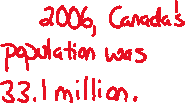 2006, Canada's
population was
33.1 million.